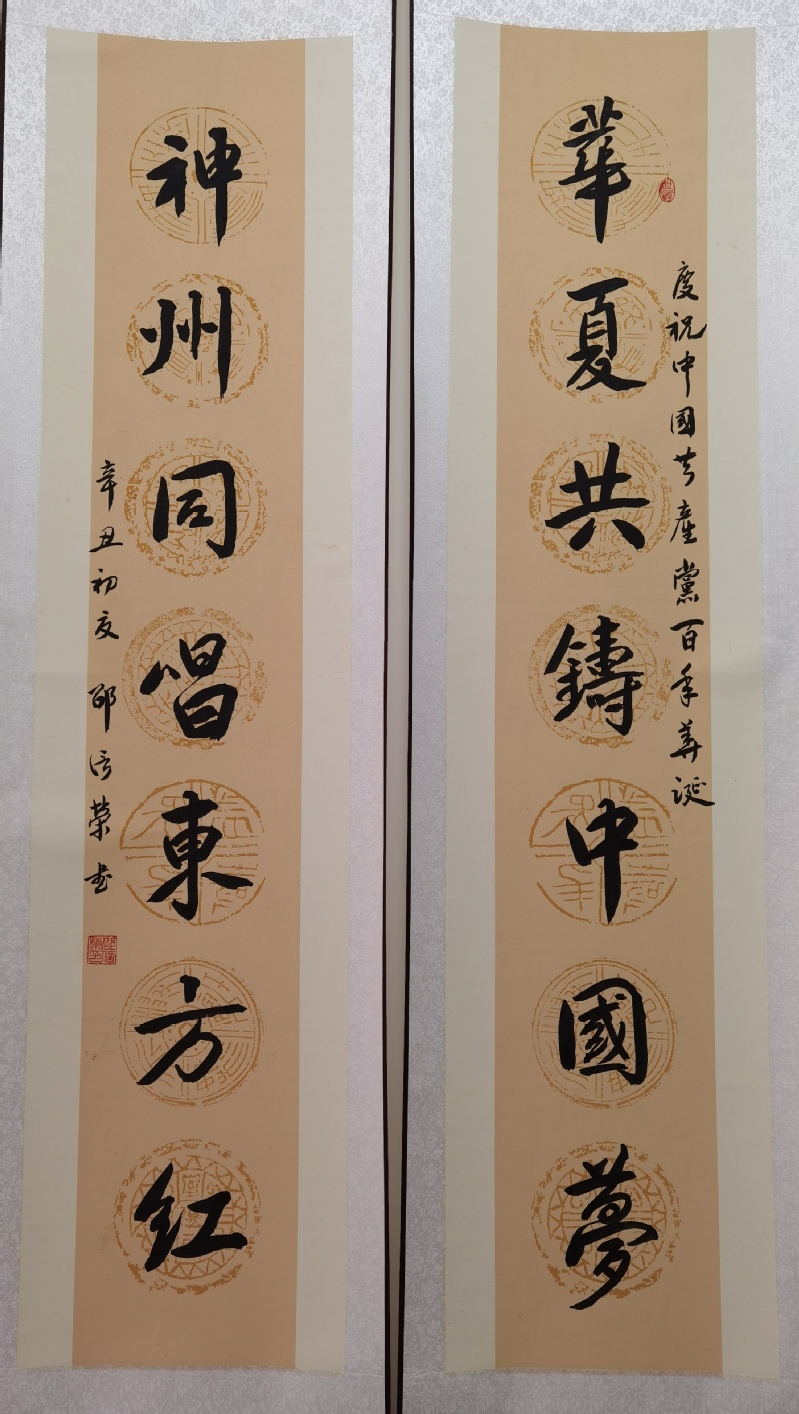 華夏共鑄中國夢
慶祝中國共産黨百年華誕
神州同唱東方紅
辛丑初夏 邵
榮書